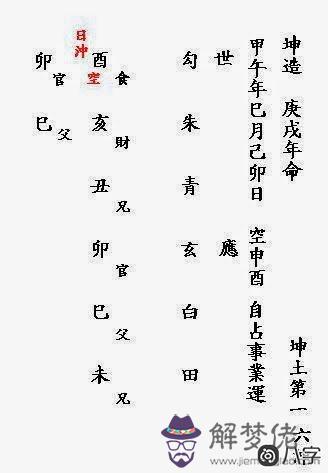 坤造 庚戌年命 坤土第一六
甲午年巳月己卯日 空申酉 自占事業運
世 應
勾 朱 青 玄 白 田
食 財 兄 官 父 兄
酉 亥 丑 卯 巳 未
日沖
空
官 父
卯 巳
解梦佬
八字